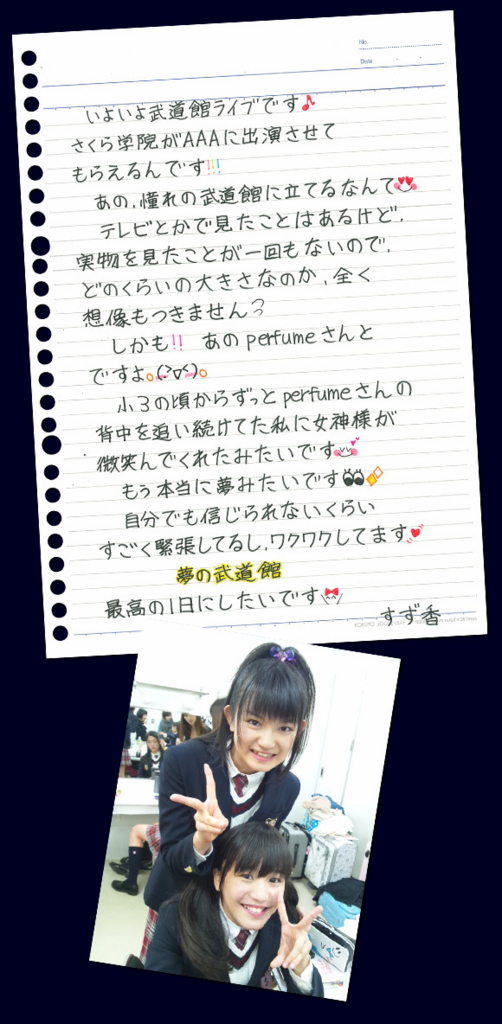 No.
Date
いよいよ武道館ライブです♪
さくら学院がAAAに出演させて
もらえるんです!!!
あの、憧れの武道館に立てるなんて
テレビとかで見たことはあるけど、
実物を見たことが一回もないので、
どのくらいの大きさなのか、全く
想像もつきません
しかも!! あのperfumeさんと
ですよ。(>▽<)。
小3の頃からずっとperfumeさんの
背中を追い続けてた私に女神様が
微笑んでくれたみたいです
もう本当に夢みたいです
自分でも信じられないくらい
すごく緊張してるし、ワクワクしてます
夢の武道館
最高の1日にしたいです
すず香